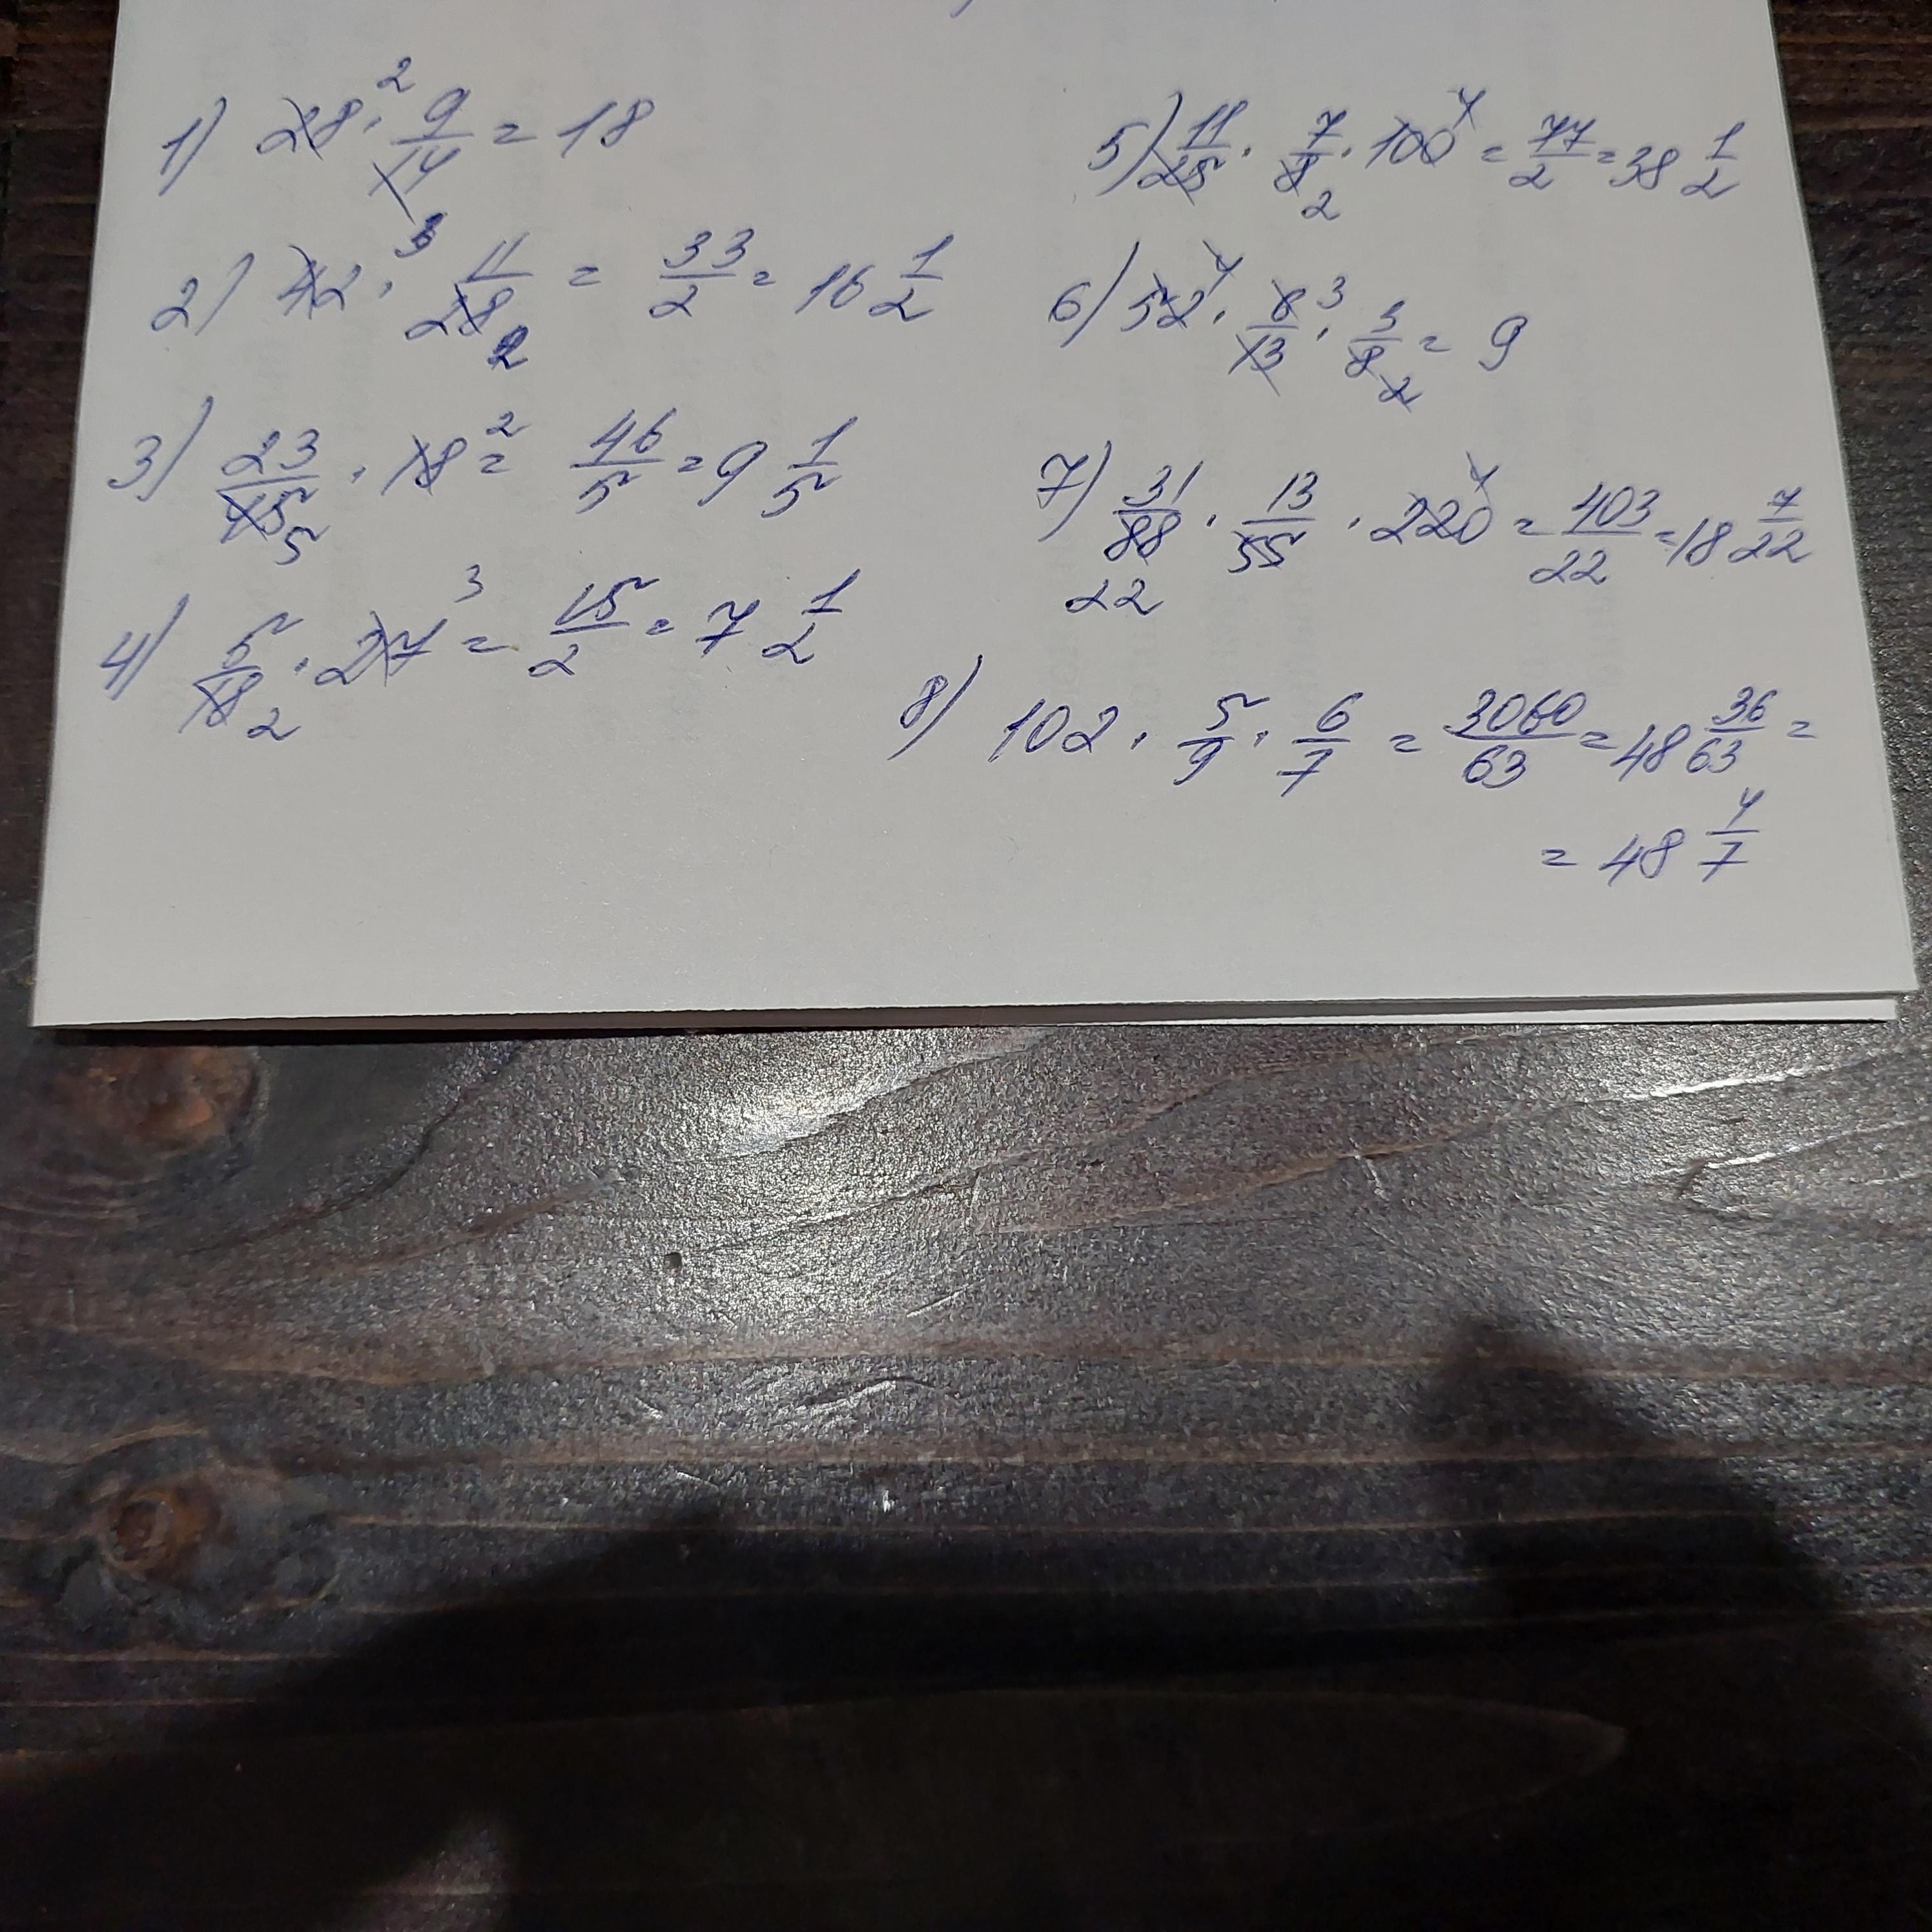 1) 28 · 2 9/14 = 18
2) 42 · 3 11/28 2 = 33/2 = 16 1/2
3) 23/45 5 · 18 2 = 46/5 = 9 1/5
4) 5/18 2 · 27 3 = 15/2 = 7 1/2
5) 11/25 · 7/8 2 · 100 4 = 77/2 = 38 1/2
6) 52 4 · 6/13 3 · 3/8 2 = 9
7) 31/88 22 · 13/55 · 220 4 = 403/22 = 18 7/22
8) 102 · 5/9 · 6/7 = 3060/63 = 48 36/63 =
= 48 4/7